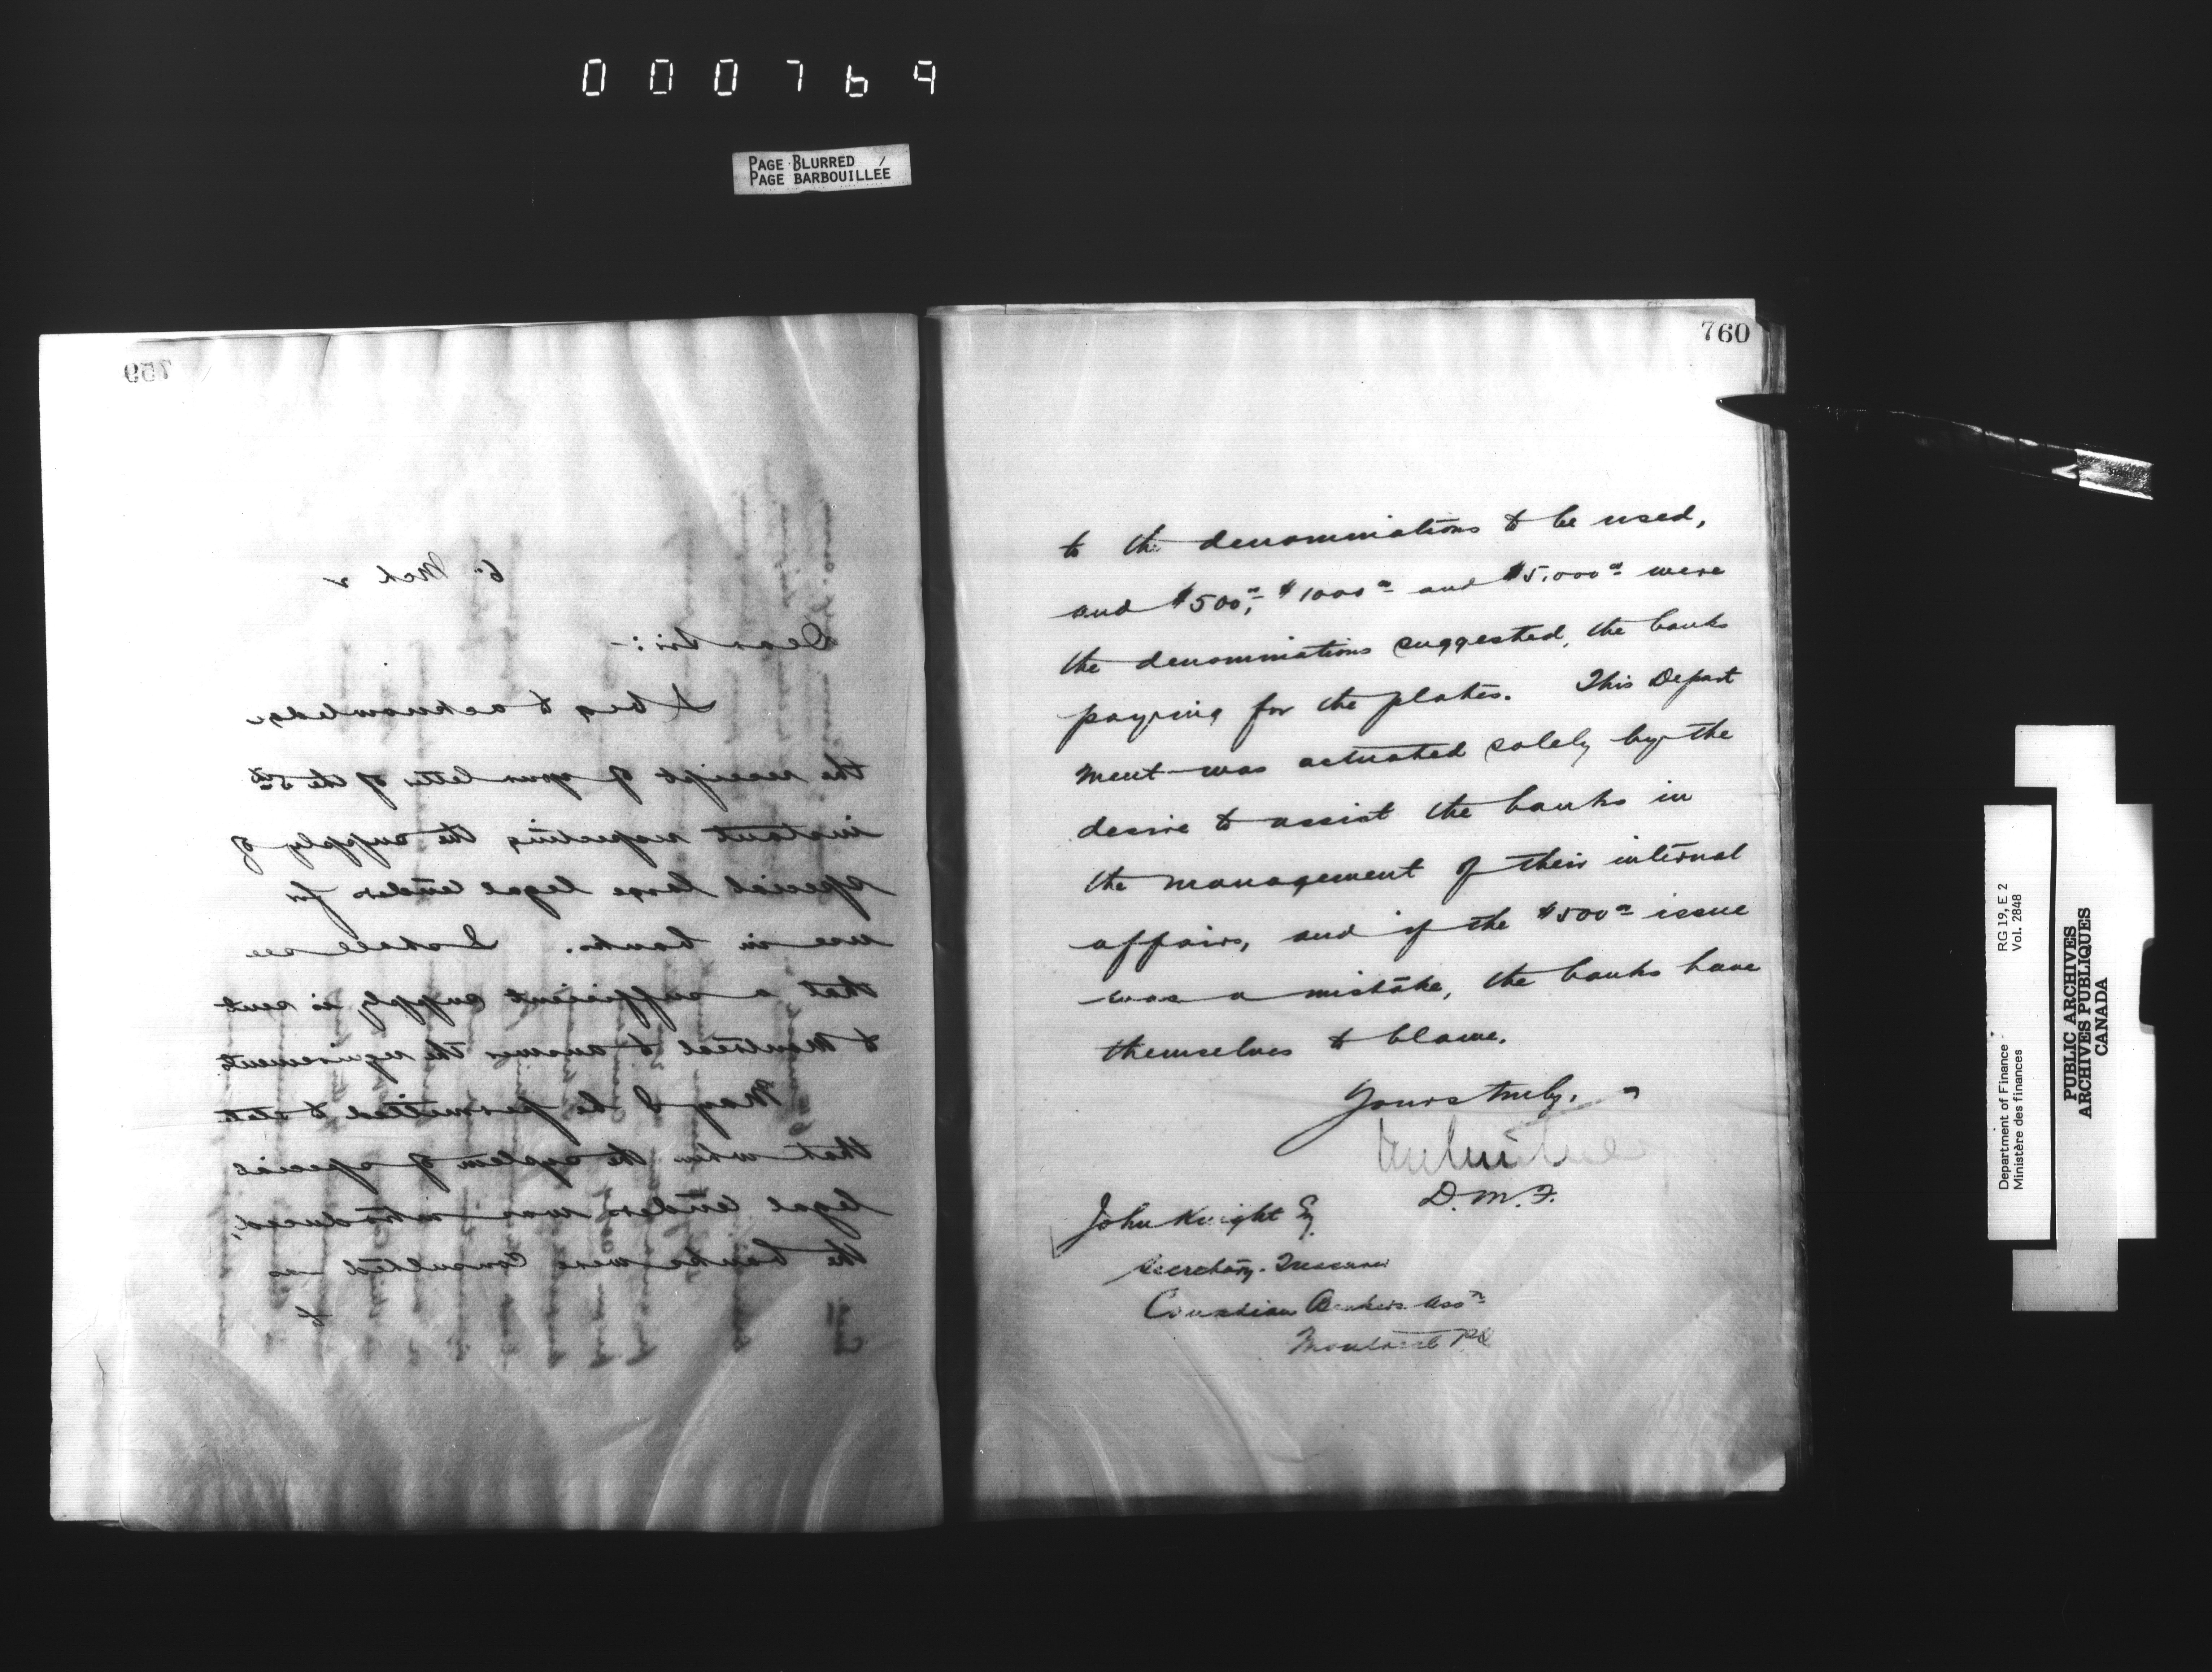 000769
PAGE BLURRED
PAGE BARBOUILLÉE
759
6 Mch 2
Dear Sir:-
I beg to acknowledge
the receipt of your letter of the 5th
instant respecting the supply of
special large legal tenders for
use in banks. I shall see
that a sufficient supply is sent
to Montreal to answer the requirements
May I be permitted to state
that when the system of special
legal tenders was introduced,
the banks were consulted as
to
760
to the denominations to be used,
and $500, $1000 and $5,000 were
the denominations suggested, the banks
paying for the plates. This Depart
ment was actuated solely by the
desire to assist the banks in
the management of their internal
affairs, and if the $500 issue
was a mistake, the banks have
themselves to blame.
Yours truly,
D.M.F.
John Knight Esq
Secretary-Treasurer
Canadian Bankers Assn
Montreal PQ
Department of Finance RG 19, E 2
Ministère des finances Vol. 2848
PUBLIC ARCHIVES
ARCHIVES PUBLIQUES
CANADA